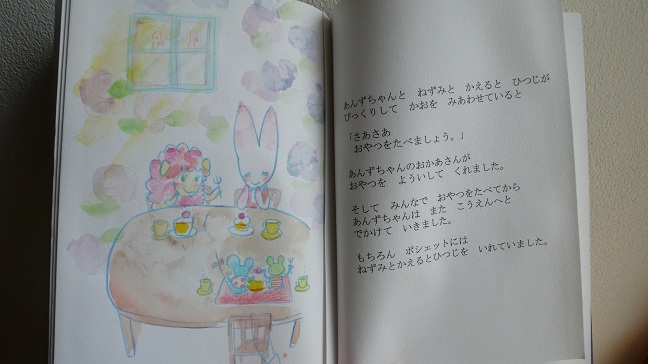 あんずちゃんと　ねずみと　かえると　ひつじが
びっくりして　かおを　みあわせていると
「さあさあ
おやつをたべましょう。」
あんずちゃんのおかあさんが
おやつを　よういして　くれました。
そして　みんなで　おやつをたべてから
あんずちゃんは　また　こうえんへと
でかけて　いきました。
もちろん　ポシェットには
ねずみとかえるとひつじを　いれていました。